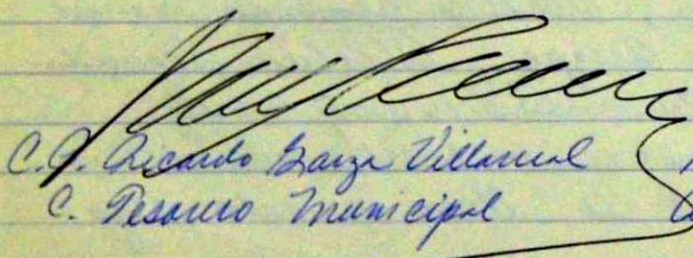 C.P. Ricardo Garza Villarreal
C. Tesorero Municipal